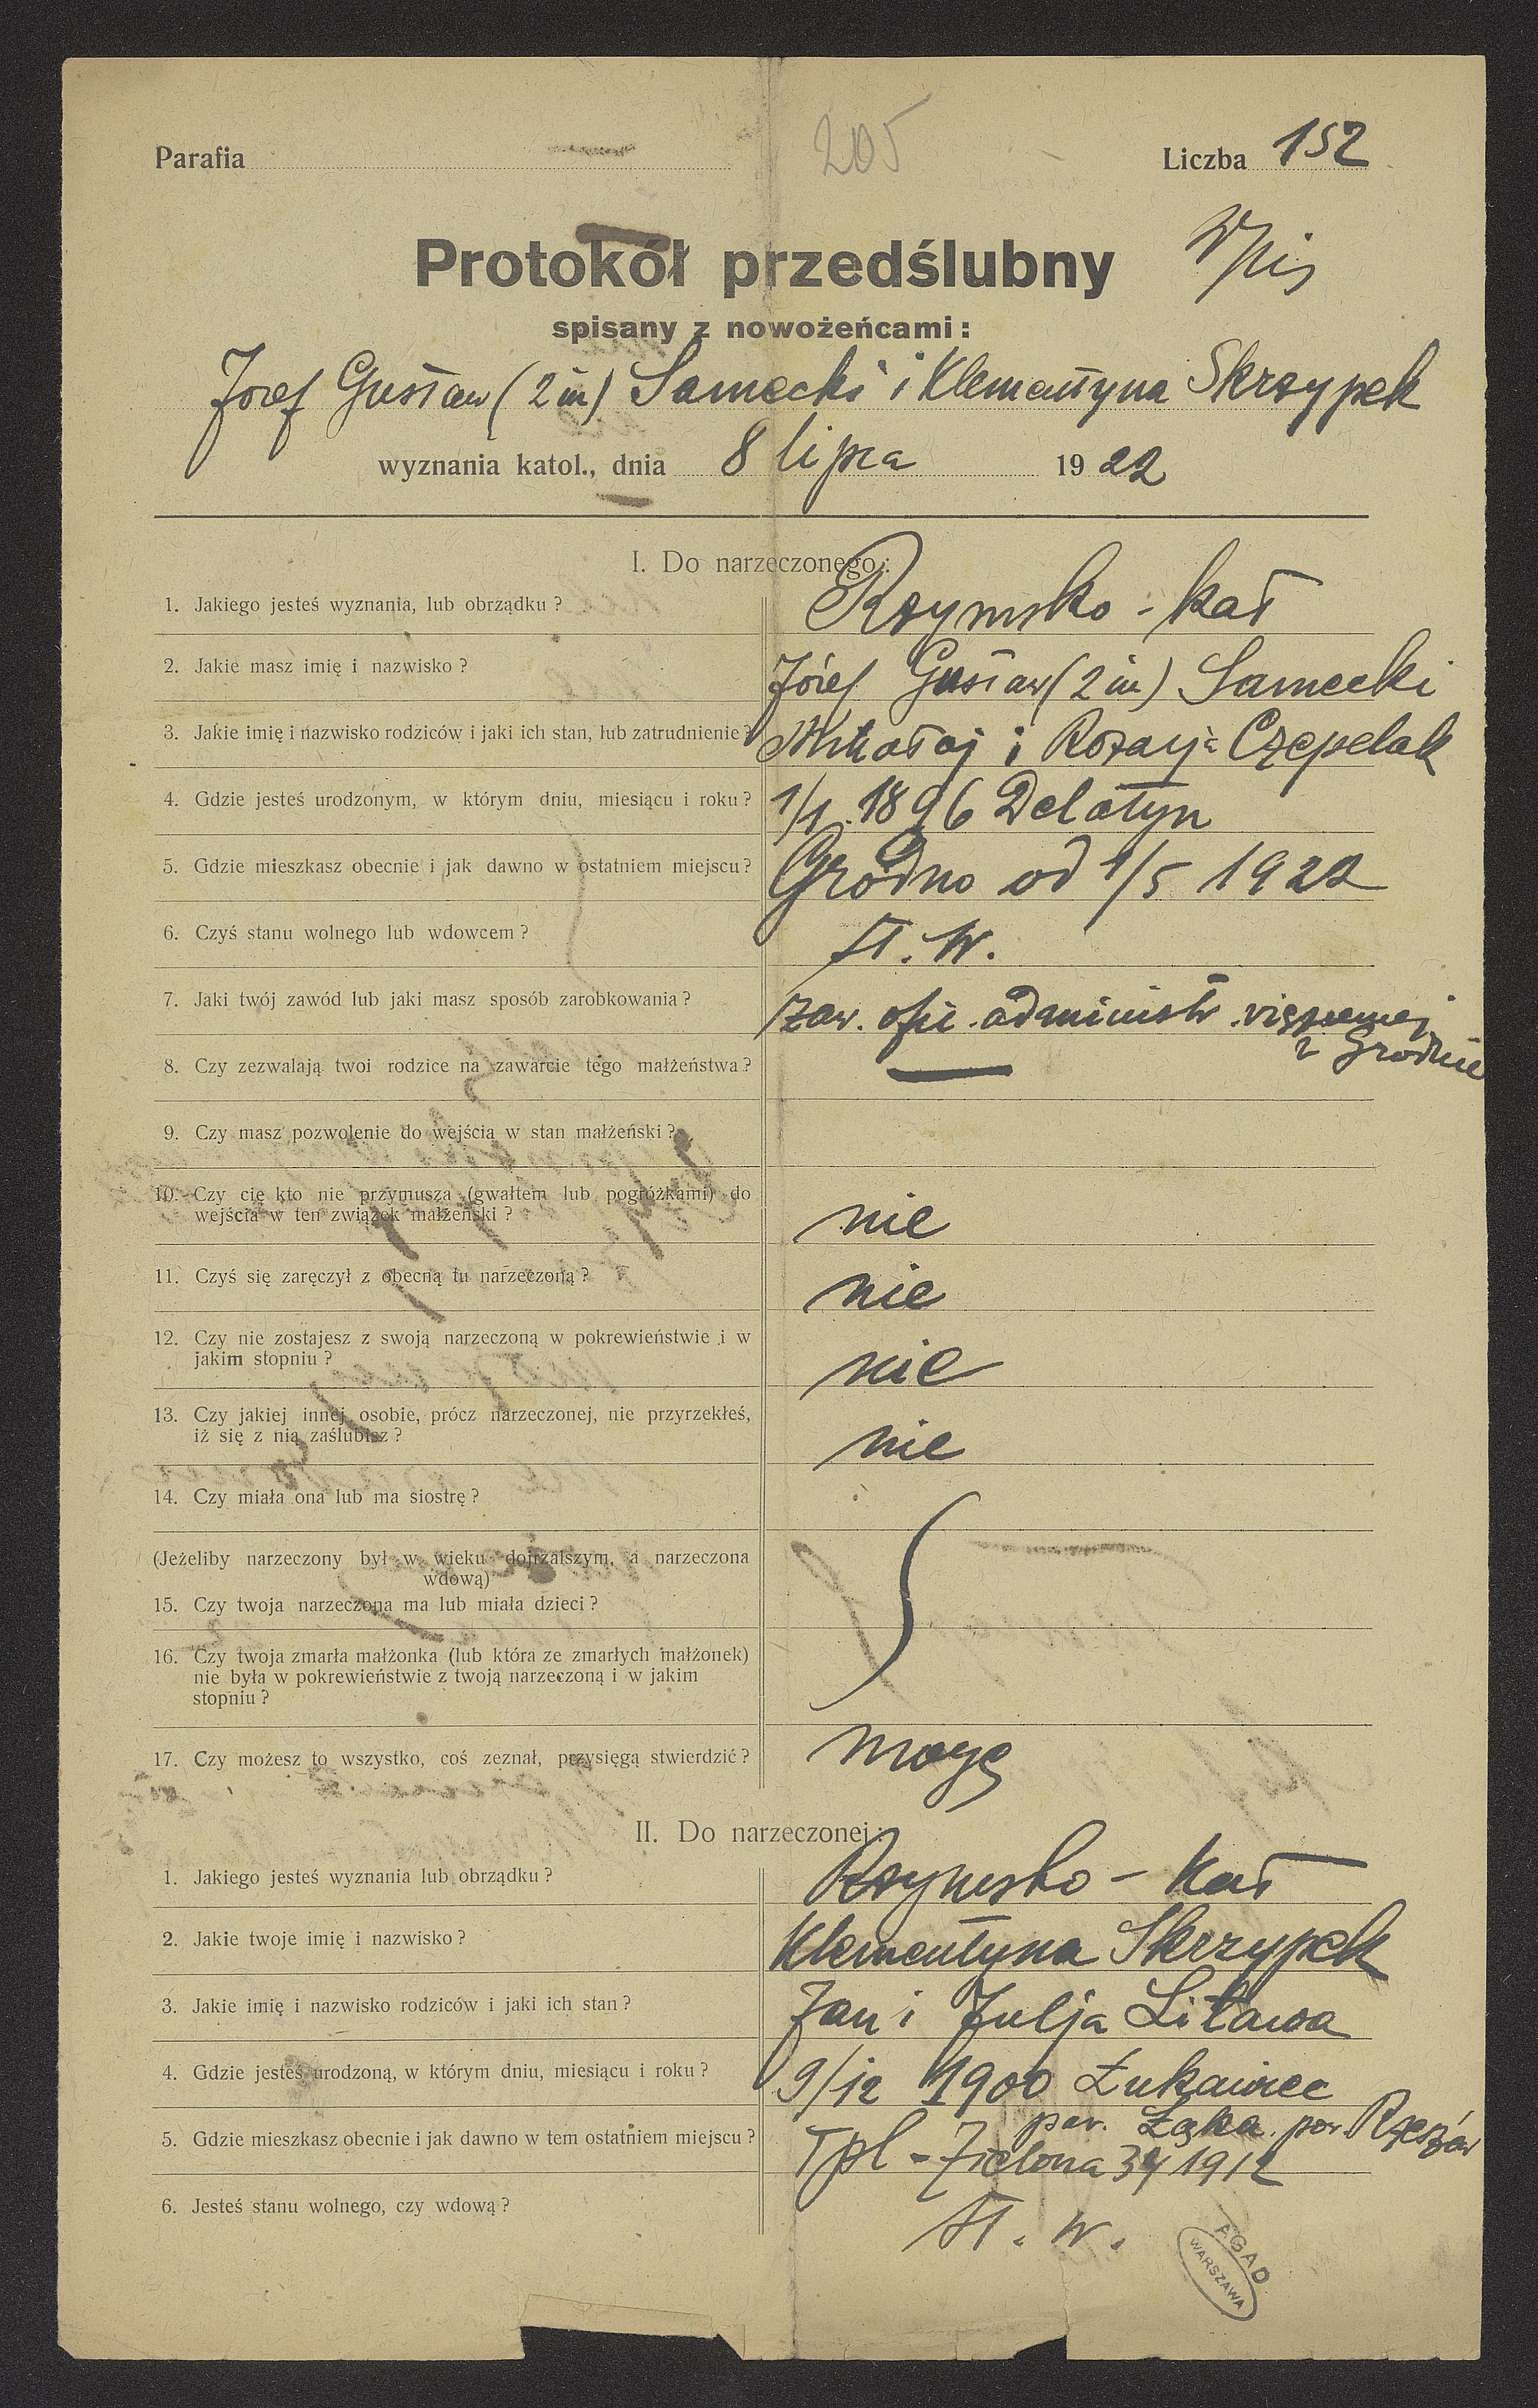 205
Parafia
Liczba 152
Protokół przedślubny
Wpis
spisany z nowożeńcami:
Józef Gustaw (2 im) Sarnecki i Klementyna Skrzypek
wyznania katol., dnia 8 lipca 1922
I. Do narzeczonego:
1. Jakiego jesteś wyznania, lub obrządku? Rzymsko-kat
2. Jakie masz imię i nazwisko? Józef Gustaw (2 im) Sarnecki
3. Jakie imię i nazwisko rodziców i jaki ich stan, lub zatrudnienie? Mikołaj i Rozalja Czepelak
4. Gdzie jesteś urodzonym, w którym dniu, miesiącu i roku? 1/1. 1896 Delatyn
5. Gdzie mieszkasz obecnie i jak dawno w ostatniem miejscu? Grodno od 1/5 1922
6. Czyś stanu wolnego lub wdowcem? st. w.
7. Jaki twój zawód lub jaki masz sposób zarobkowania? zaw. ofic. administr. więziennej
w Grodnie
8. Czy zezwalają twoi rodzice na zawarcie tego małżeństwa? —
9. Czy masz pozwolenie do wejścia w stan małżeński?
10. Czy cię kto nie przymusza (gwałtem lub pogróżkami) do
wejścia w ten związek małżeński? nie
11. Czyś się zaręczył z obecną tu narzeczoną? nie
12. Czy nie zostajesz z swoją narzeczoną w pokrewieństwie i w
jakim stopniu? nie
13. Czy jakiej innej osobie, prócz narzeczonej, nie przyrzekłeś,
iż się z nią zaślubisz? nie
14. Czy miała ona lub ma siostrę?
(Jeżeliby narzeczony był w wieku dojrzalszym, a narzeczona
wdową)
15. Czy twoja narzeczona ma lub miała dzieci?
16. Czy twoja zmarła małżonka (lub która ze zmarłych małżonek)
nie była w pokrewieństwie z twoją narzeczoną i w jakim
stopniu?
17. Czy możesz to wszystko, coś zeznał, przysięgą stwierdzić? mogę
II. Do narzeczonej:
1. Jakiego jesteś wyznania lub obrządku? Rzymsko-kat
2. Jakie twoje imię i nazwisko? Klementyna Skrzypek
3. Jakie imię i nazwisko rodziców i jaki ich stan? Jan i Julja Litawa
4. Gdzie jesteś urodzoną, w którym dniu, miesiącu i roku? 9/12 1900 Łukawiec
par. Łąka pow. Rzeszów
5. Gdzie mieszkasz obecnie i jak dawno w tem ostatniem miejscu? Tpl - Zielona 34 1912
6. Jesteś stanu wolnego, czy wdową? st. w.
AGAD
WARSZAWA